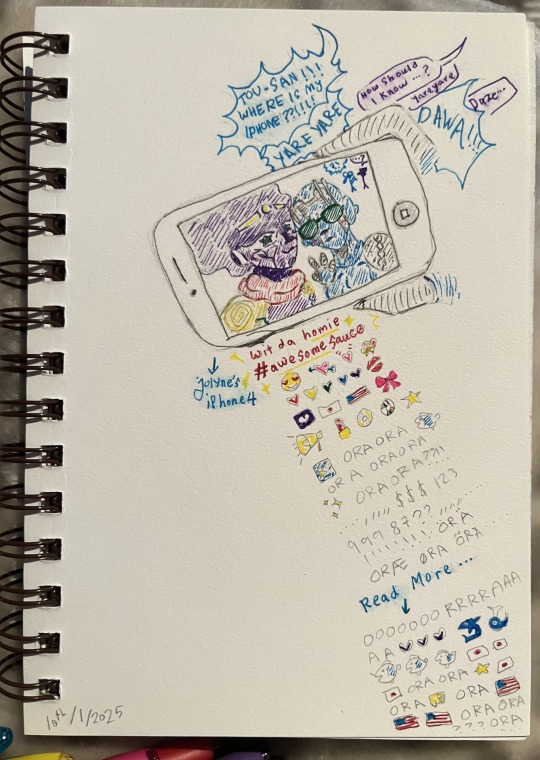 TOU-SAN!!!
WHERE IS MY
IPHONE ??!!!!
YARE YARE
How should
I know ...?
yareyare
Daze...
DAWA!!
wit da homie
#awesomesauce
jolyne's
iPhone4
ORA ORA
ORA ORAORA
ORA ORA??!!
$$$ 123
999 87??
!!!!!!!! ÖRÄ
ORÆ ØRA ÖRÄ
Read More ...
OOOOOOO RRRRAAAA
AA
ORA ORA
ORA ORA
ORA ORA
???ORA
10th/1/2025